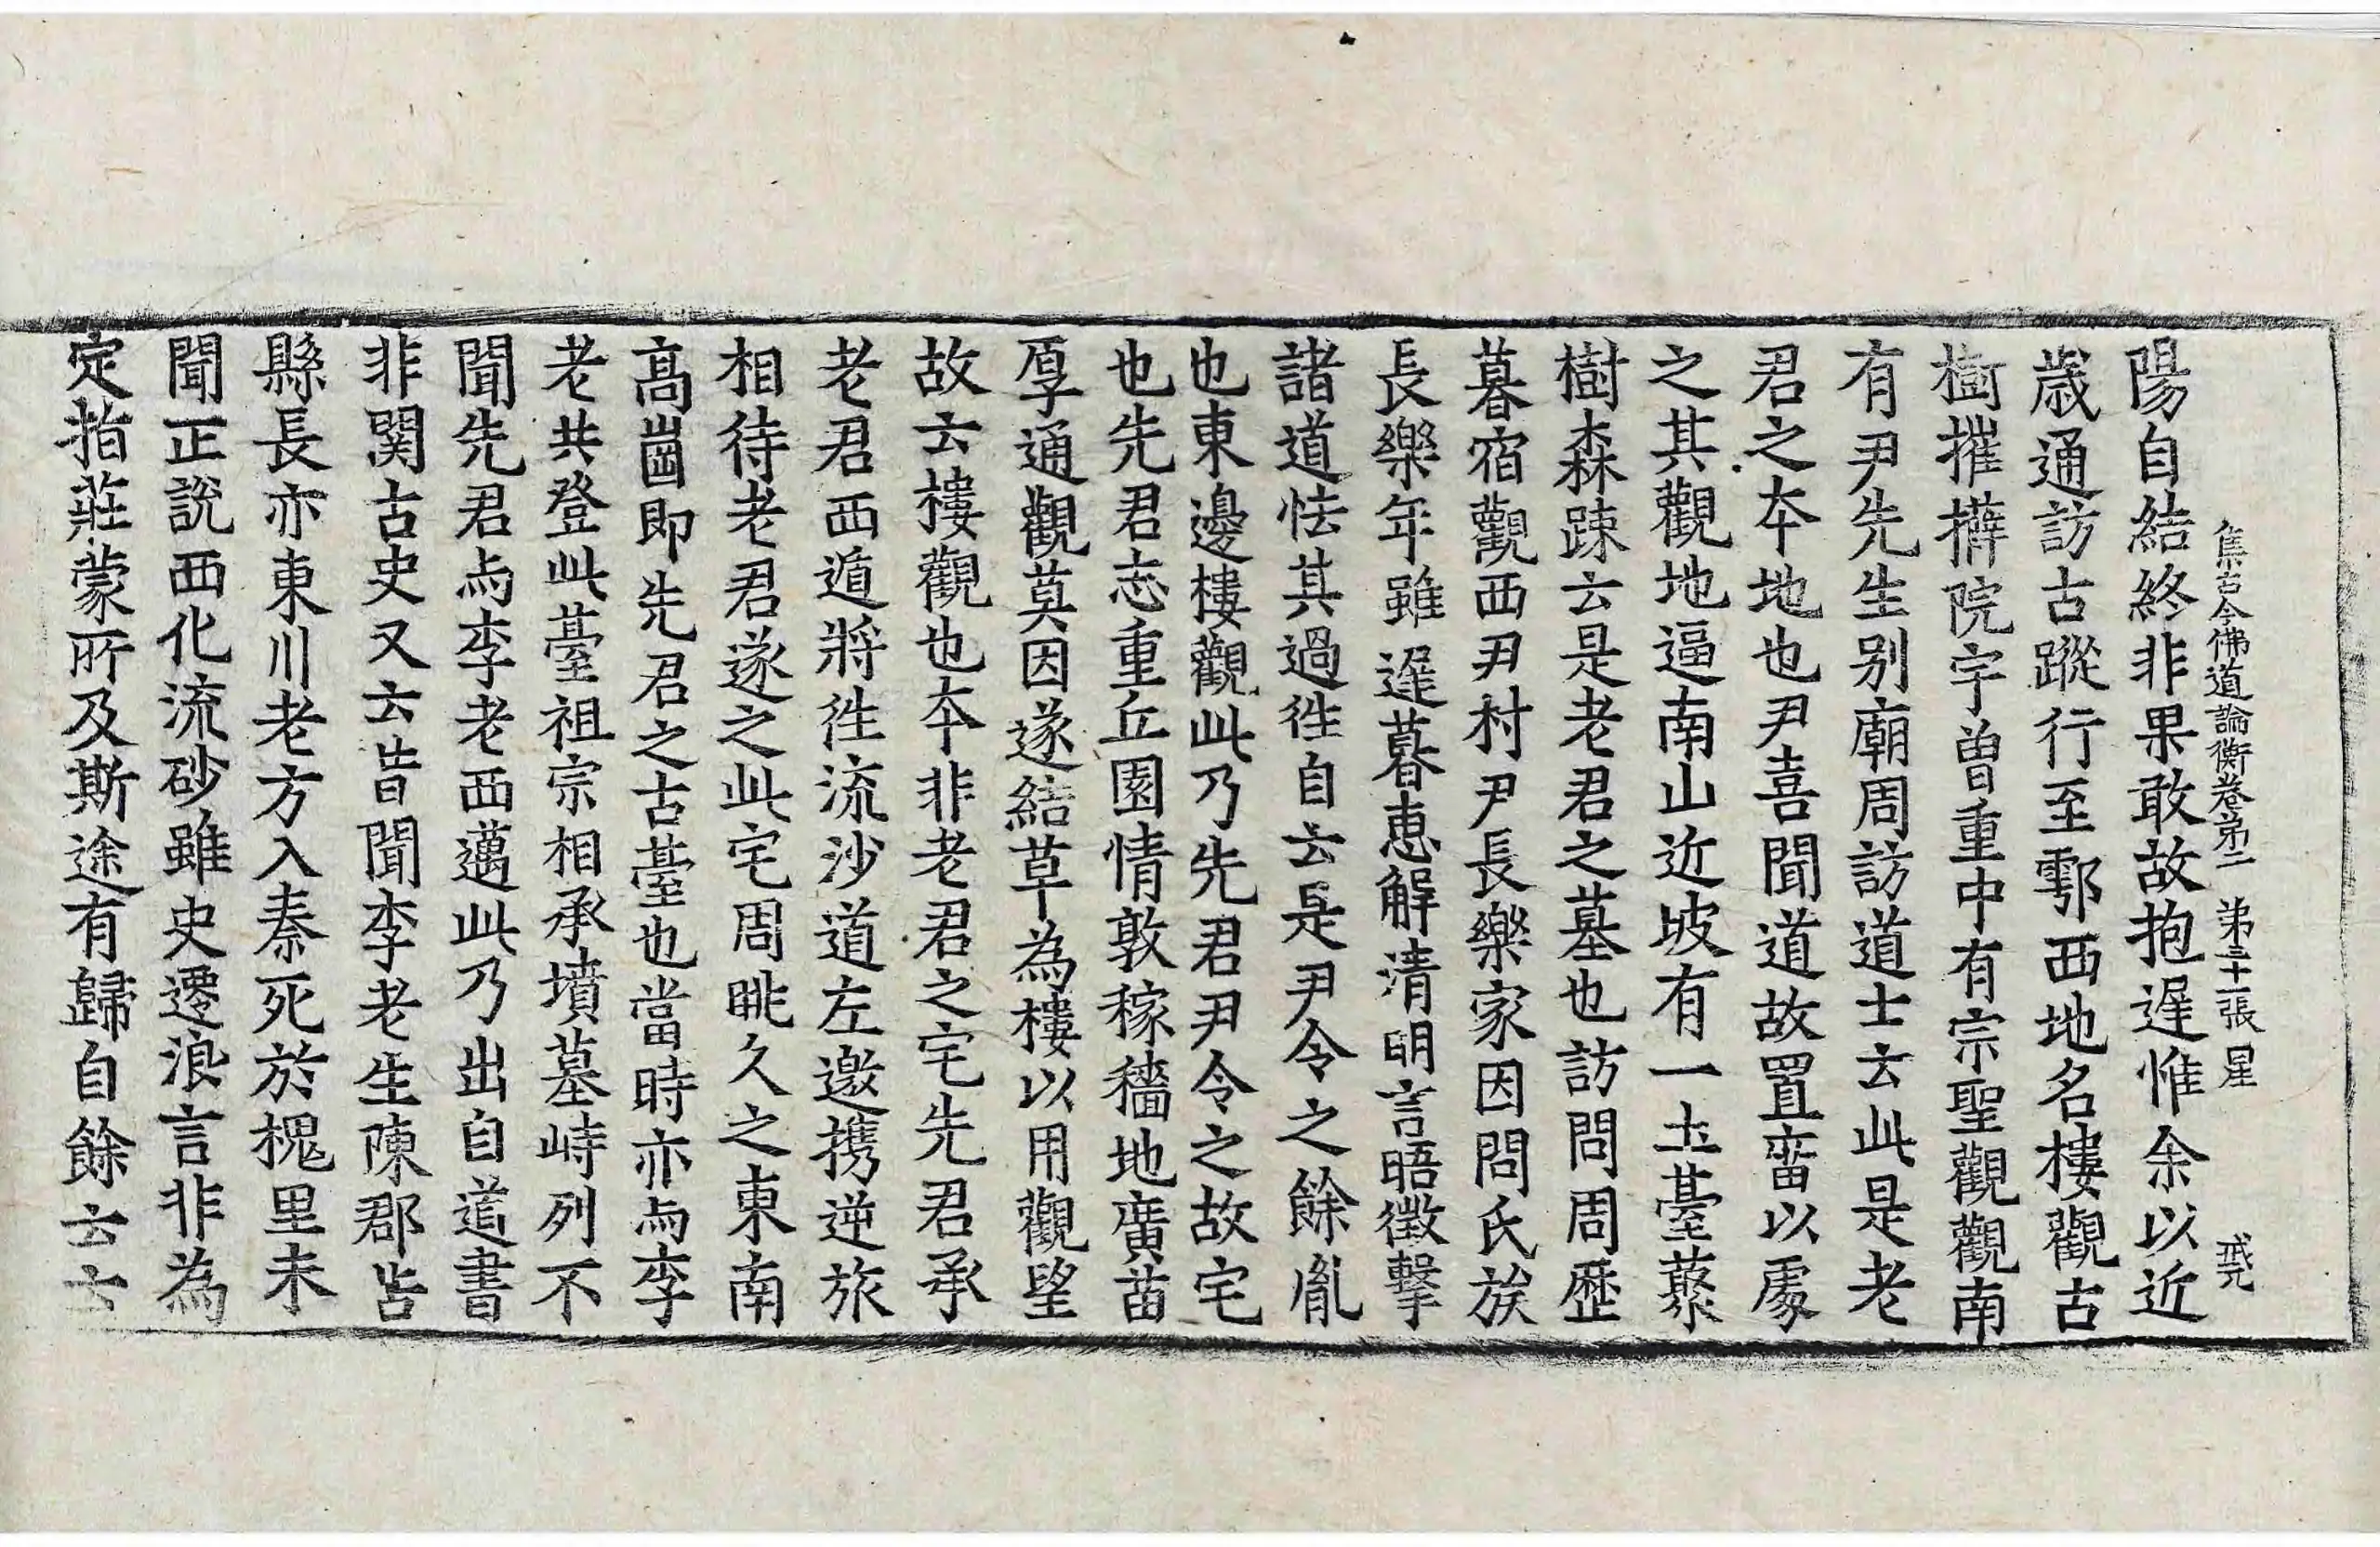 集古今佛道論衡卷第二 第三十二張 星
陽自結終非果敢故抱遲惟余以近
歲通訪古蹤行至鄠西地名樓觀古
樹摧㩁院宇曾重中有宗聖觀觀南
有尹先生别廟周訪道士云此是老
君之本地也尹喜聞道故置畱以處
之其觀地逼南山近坡有一土臺藂
樹森踈云是老君之墓也訪問周歷
暮宿觀西尹村尹長樂家因問氏族
長樂年雖遲暮惠解清明言晤徵擊
諸道恠其過往自云是尹令之餘胤
也東邊樓觀此乃先君尹令之故宅
也先君志重丘園情敦稼穡地廣苗
厚通觀莫因遂結草為樓以用觀望
故云樓觀也本非老君之宅先君承
老君西遁將往流沙道左邀携逆旅
相待老君遂之此宅周眺久之東南
髙崮即先君之古臺也當時亦与李
老共登此臺祖宗相承墳墓峙列不
聞先君与李老西邁此乃出自道書
非関古史又云昔聞李老生陳郡苦
縣長亦東川老方入秦死於槐里未
聞正說西化流砂雖史遷浪言非為
定指莊蒙所及斯途有歸自餘云云